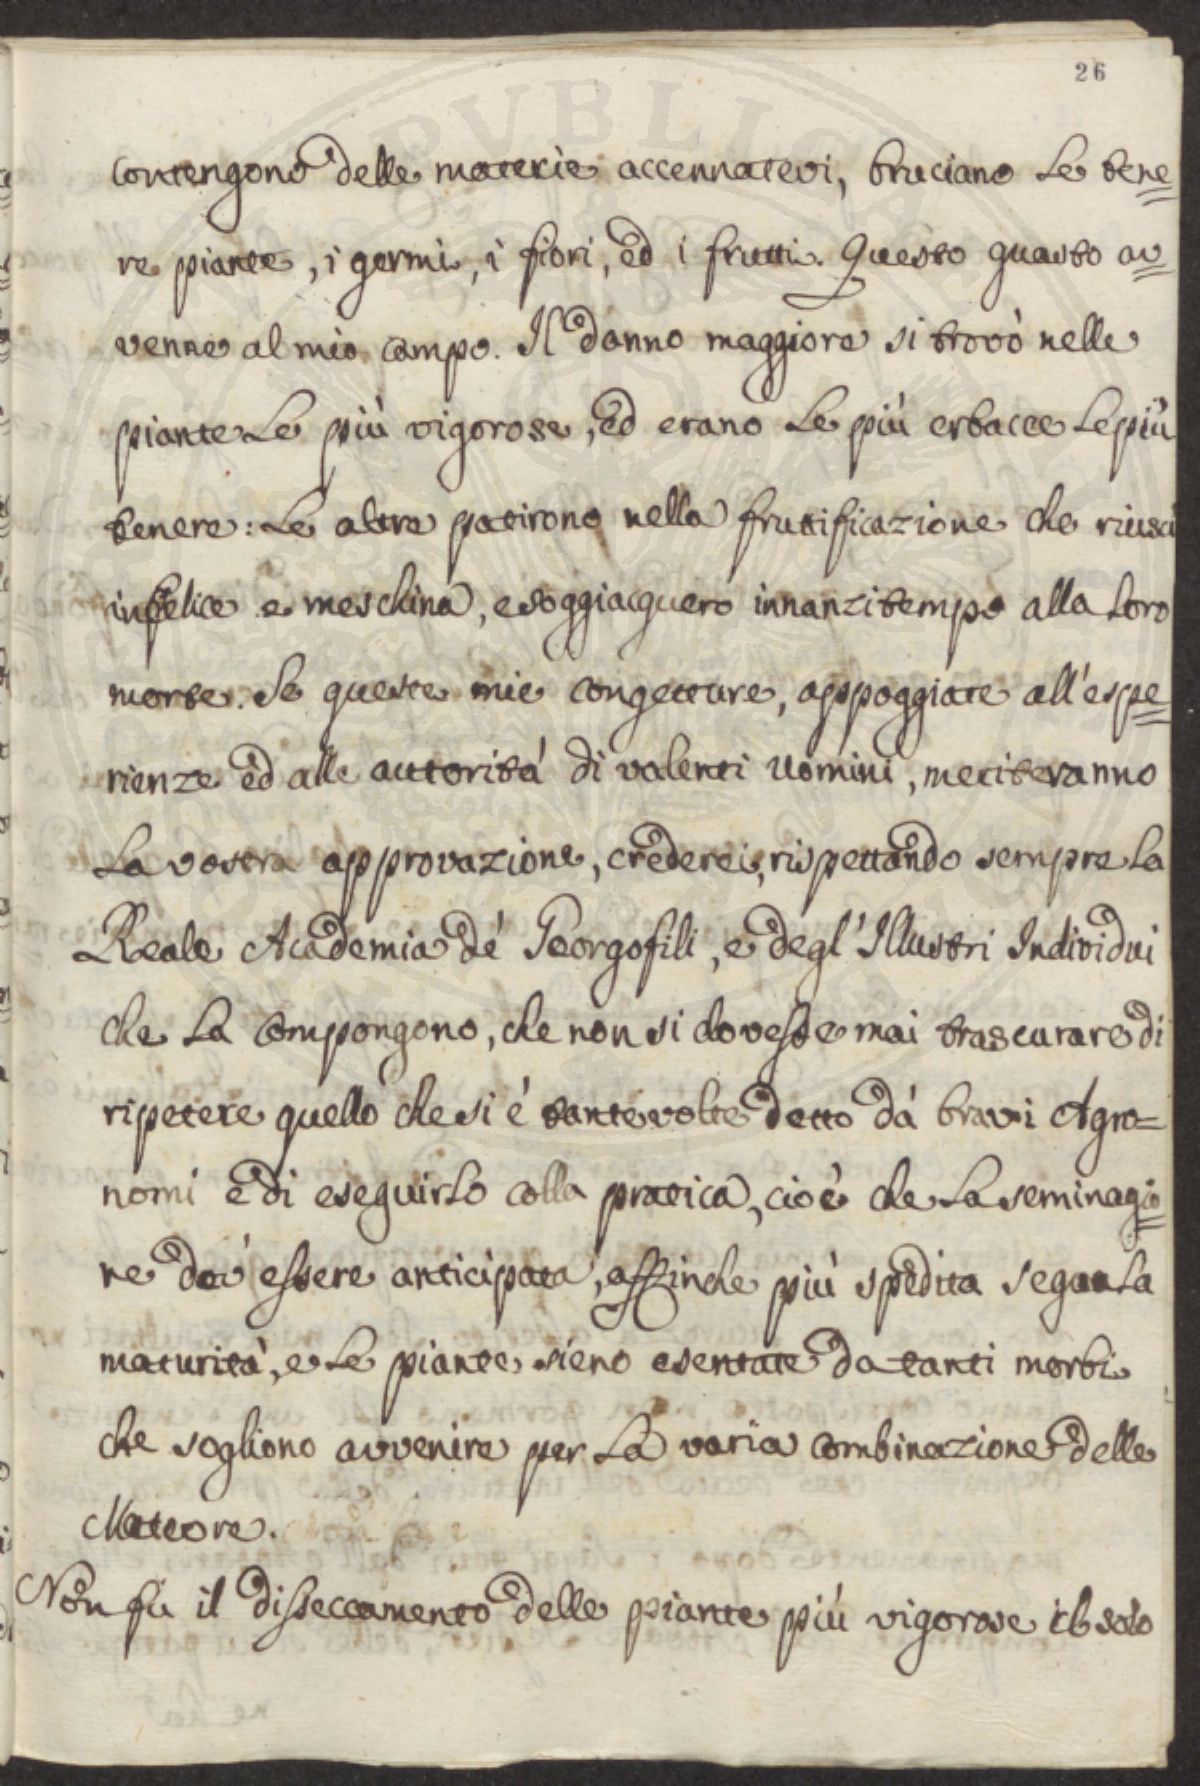 26
contengono delle materie accennatevi, bruciano le tene=
re piante, i germi, i fiori, ed i frutti. Questo guasto av=
venne al mio campo. Il danno maggiore si trovò nelle
piante le più vigorose, ed erano le più erbacee le più
tenere: le altre patirono nella fruttificazione che riuscì
infelice e meschina, e soggiacquero innanzi tempo alla loro
morte. Se queste mie congetture, appoggiate all'espe=
rienze ed alle autorità di valenti Uomini, meriteranno
la vostra approvazione, crederei, rispettando sempre la
Reale Academia dè Georgofili, e degl'Illustri Individui
che la compongono, che non si dovesse mai trascurare di
ripetere quello che si è tante volte detto dà bravi Agro=
nomi e di eseguirlo colla pratica, cioè che la seminagio=
ne dev' essere anticipata, affinche più spedita segua la
maturità, e le piante sieno esentate da tanti morbi
che sogliono avvenire per la varia combinazione delle
Meteore.
Non fu il disseccamento delle piante più vigorose il solo